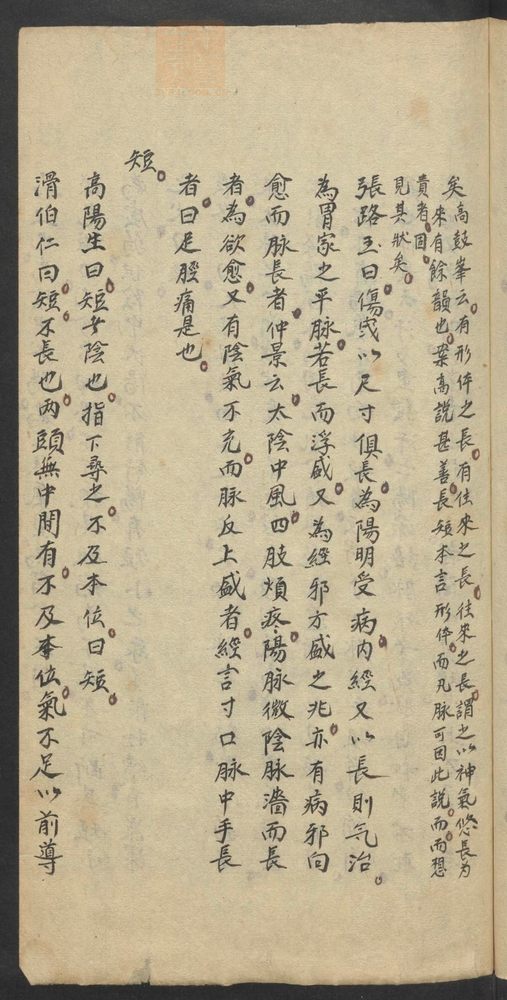 矣高鼓峯云有形体之長有往來之長往來之長謂之以神氣悠長為
來有餘韻也案高説甚善長短本言形体而凡脉可因此説而而想
貴者因
見其狀矣
張路玉曰傷寒以尺寸俱長為陽明受病内經又以長則气治
為胃家之平脉若長而浮盛又為經邪方盛之兆亦有病邪向
愈而脉長者仲景云太陰中風四肢煩疼陽脉微陰脉濇而長
者為欲愈又有陰氣不充而脉反上盛者經言寸口脉中手長
者曰足脛痛是也
短
高陽生曰短者陰也指下尋之不及本位曰短
滑伯仁曰短不長也两頭無中間有不及本位氣不足以前導